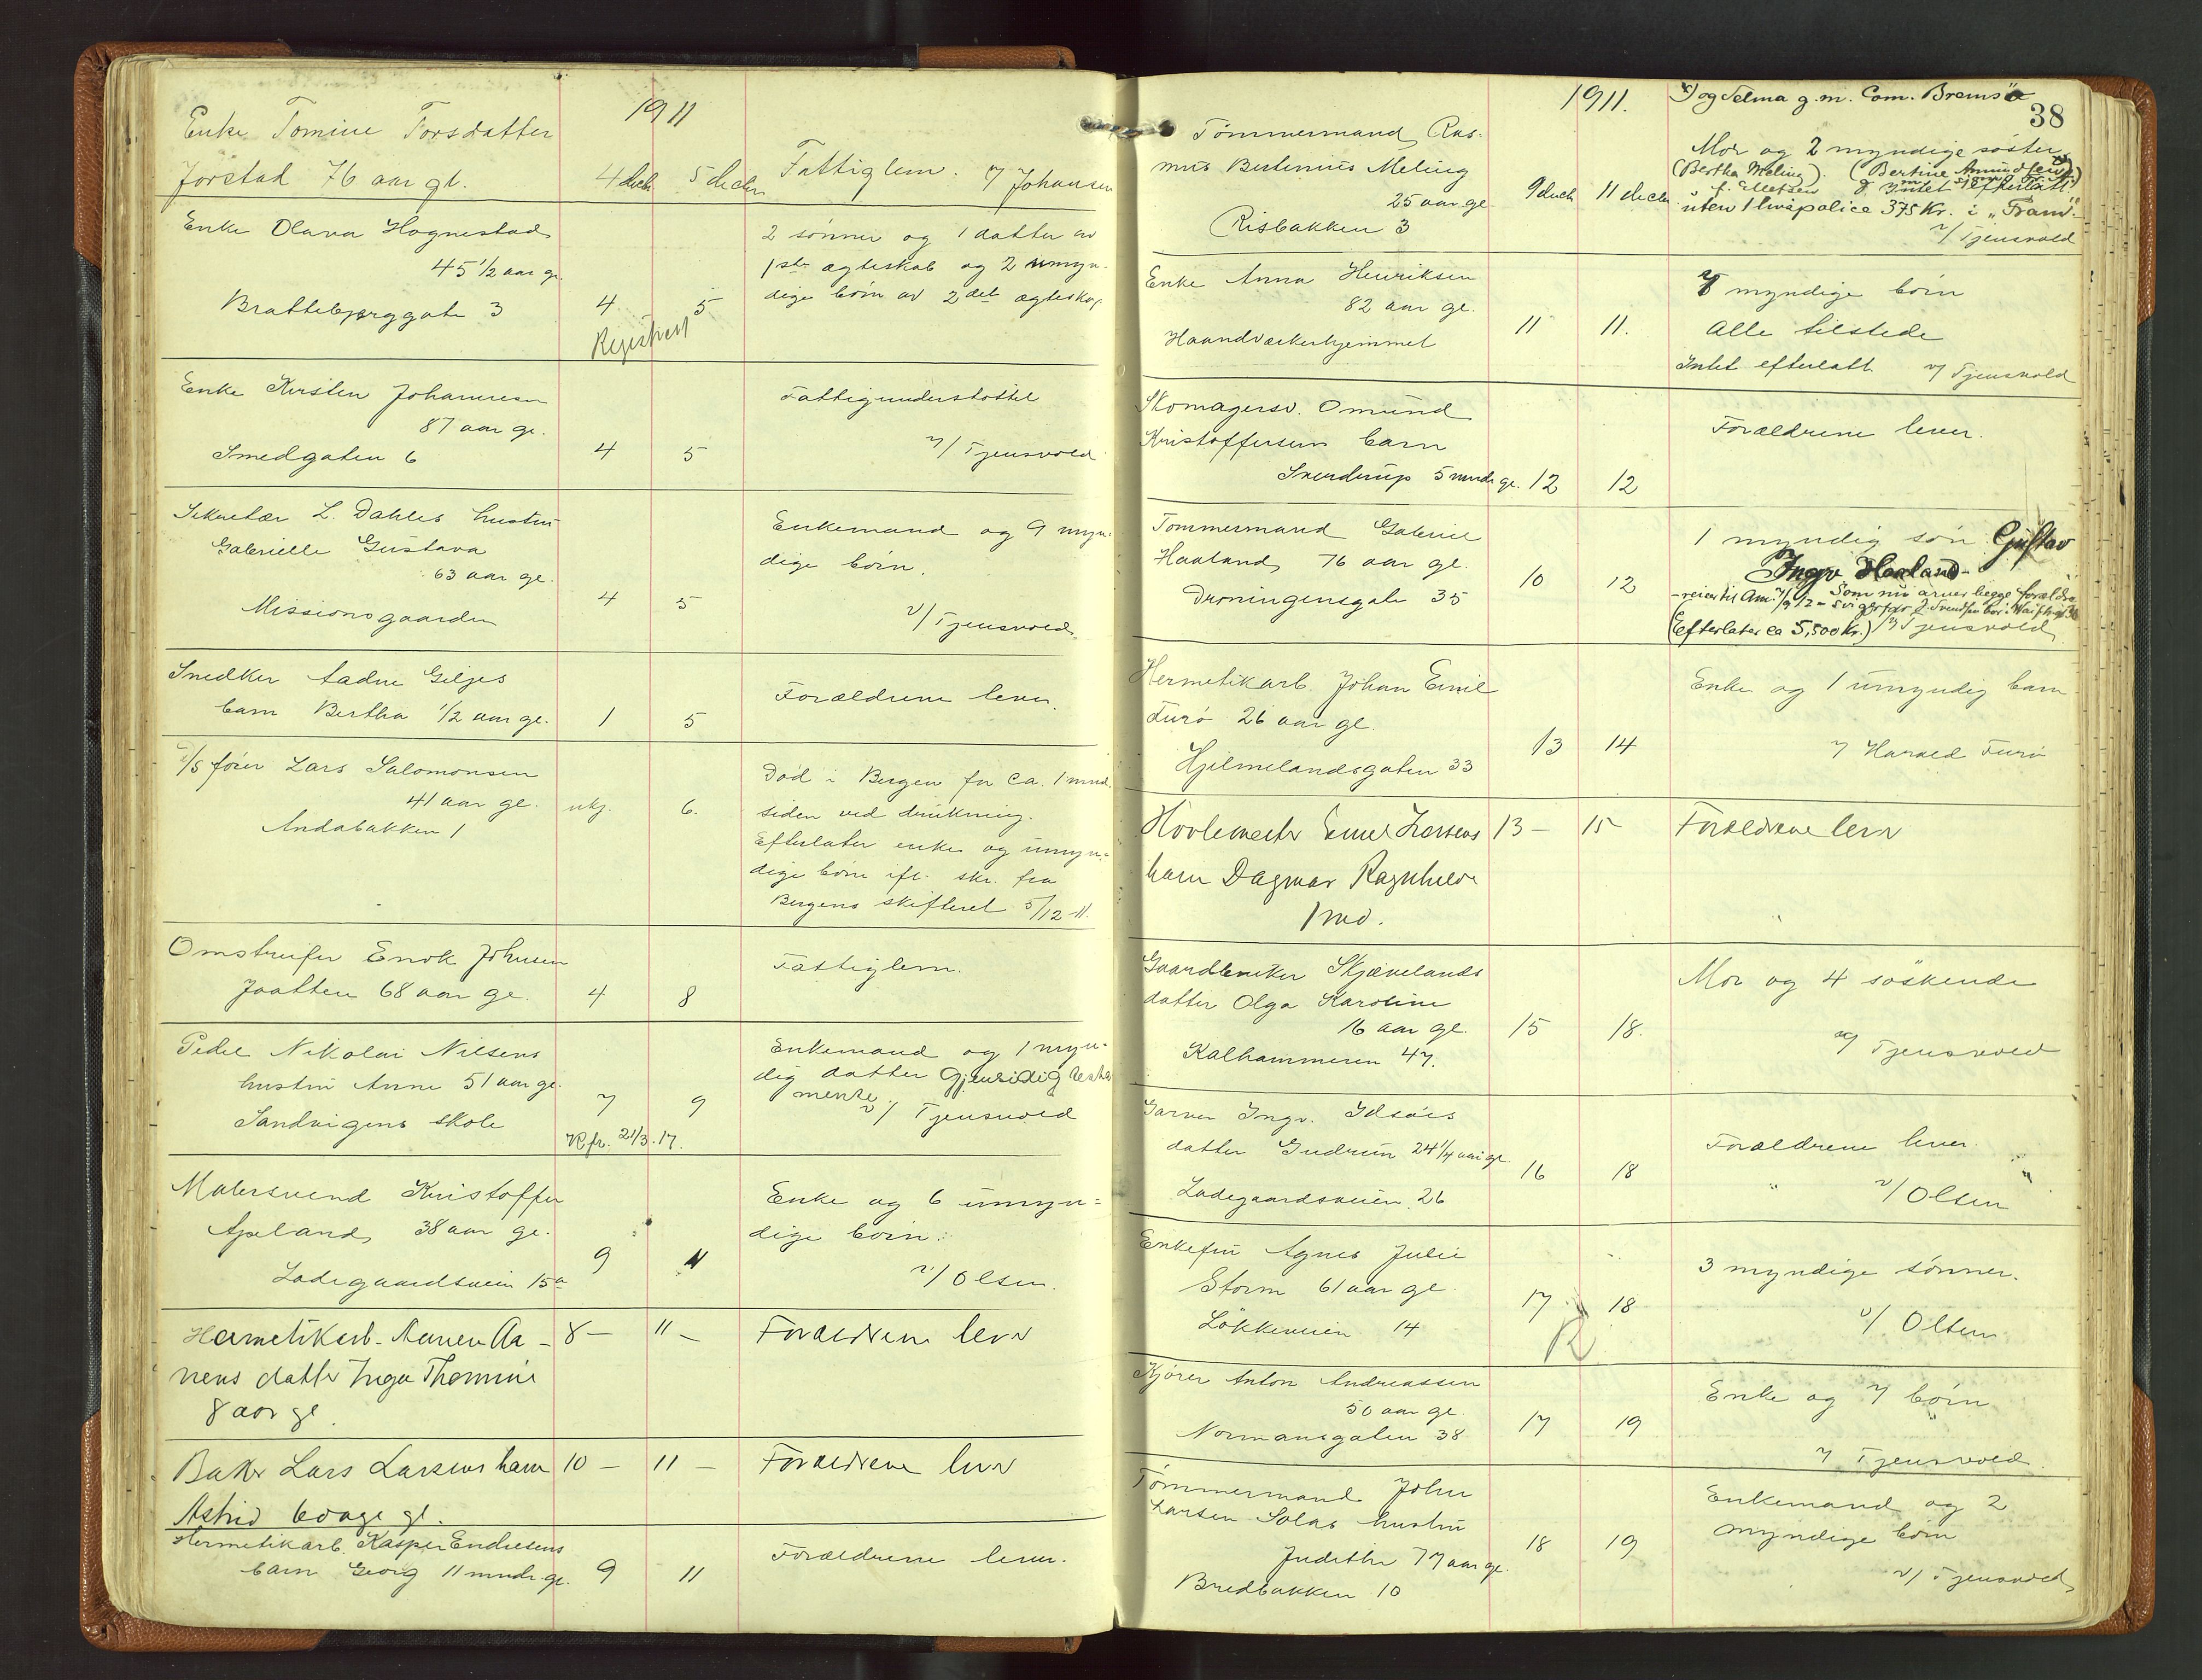 1911
Enke Tomine Torsdatter
Jørstad 76 aar gl. 4 decb. 5 decbr. Fattiglem. v/ Johansen
Enke Olava Hognestad
45 1/2 aar gl.
Brattebjerggate 3 4 5
Registrert
2 sønner og 1 datter av
1ste ægteskab og 2 umyn-
dige børn av 2det ægteskap
Enke Kirsten Johannesen
87 aar gl.
Smedgaten 6 4 5
Fattigunderstøttet
v/ Tjensvold
Sekretær L. Dahles hustru
Gabrielle Gustava
63 aar gl.
Missionsgaarden 4 5
Enkemand og 9 myn-
dige børn.
v/ Tjensvold.
Snedker Aadne Giljes
barn Bertha 1/2 aar gl. 1 5
Forældrene lever.
D/S fører Lars Salomonsen
41 aar gl. ukj. 6.
Andabakken 1
Død i Bergen for ca. 1 mnd.
siden ved drukning.
Efterlater enke og umyn-
dige børn ifl. skr. fra
Bergens skifteret 5/12-11.
Omstreifer Enok Johnsen
Jaatten 68 aar gl. 4 8
Fattiglem.
Pedel Nikolai Nilsens
hustru Anne 51 aar gl.
Sandvigens skole 7 9
Kfr. 21/3-17.
Enkemand og 1 myn-
dig datter Gjensidig testa
mente.
v/ Tjensvold
Malersvend Kristoffer
Apeland, 38 aar gl.
Ladegaardsveien 15a 9 11
Enke og 6 umyn-
dige børn.
v/ Olsen.
Hermetikarb. Aanen Aa-
nens datter Inga Thomine
8 aar gl.
8 - 11 - Forældrene lever
Baker Lars Larsens barn 10 - 11 - Forældrene lever
Astrid 6 dage gl.
Hermetikarb. Kasper Endresens
barn Georg 11 mndr. gl. 9 11 Forældrene lever.
1911.
x) og Selma g.m. Com. Bremsø
38
Tømmermand Ras-
mus Bertinius Meling
25 aar gl.
Risbakken 3
9 decb 11 decbr.
Mor og 2 myndige søstre
(Bertha Meling). (Bertine Amundsen)
f. Ellefsen Intet efterlatt
uten 1 livspolice 375 Kr. i "Fram".
v/ Tjensvold
Enke Anna Henriksen
82 aar gl.
Haandværkerhjemmet 11 11.
8 myndige børn
Alle tilstede
Intet efterlatt v/ Tjensvold
Skomagersv. Omund
Kristoffersens barn
Sverdrup 5 mndr gl. 12 12
Forældrene lever.
Tømmermand Gabriel
Haaland, 76 aar gl.
Dronningensgate 35 10 12
1 myndig søn Gustav
Ingv Haaland
som nu arver begge forældre
(Efterlater ca 5,500 Kr.) v/ Tjensvold
Hermetikarb. Johan Emil
Furø 26 aar gl.
Hjelmelandsgaten 33 13 14
Enke og 1 umyndig barn
v/ Harald Furø
Høvlemester Emil Larsens 13 - 15 Forældrene lever
barn Dagmar Ragnhilda
1 md.
Gaardbruker Skjævelands
datter Olga Karoline
16 aar gl.
Kalhammeren 47. 15 18.
Mor og 4 søskende
v/ Tjensvold
Garver Ingv. Idsøes
datter Gudrun 24 1/4 aar gl.
Ladegaardsveien 26 16 18
Forældrene lever.
v/ Olsen
Enkefru Agnes Julie
Storm 61 aar gl.
Løkkeveien 14 17 18
R
3 myndige sønner.
v/ Olsen
Kjører Anton Andreassen
50 aar gl.
Normansgaten 38 17 19
Enke og 7 børn
v/ Tjensvold.
Tømmermand John
Larsen Solas hustru
Judithe 77 aar gl.
Bredbakken 10
18 19
Enkemand og 2
myndige børn
v/ Tjensvold